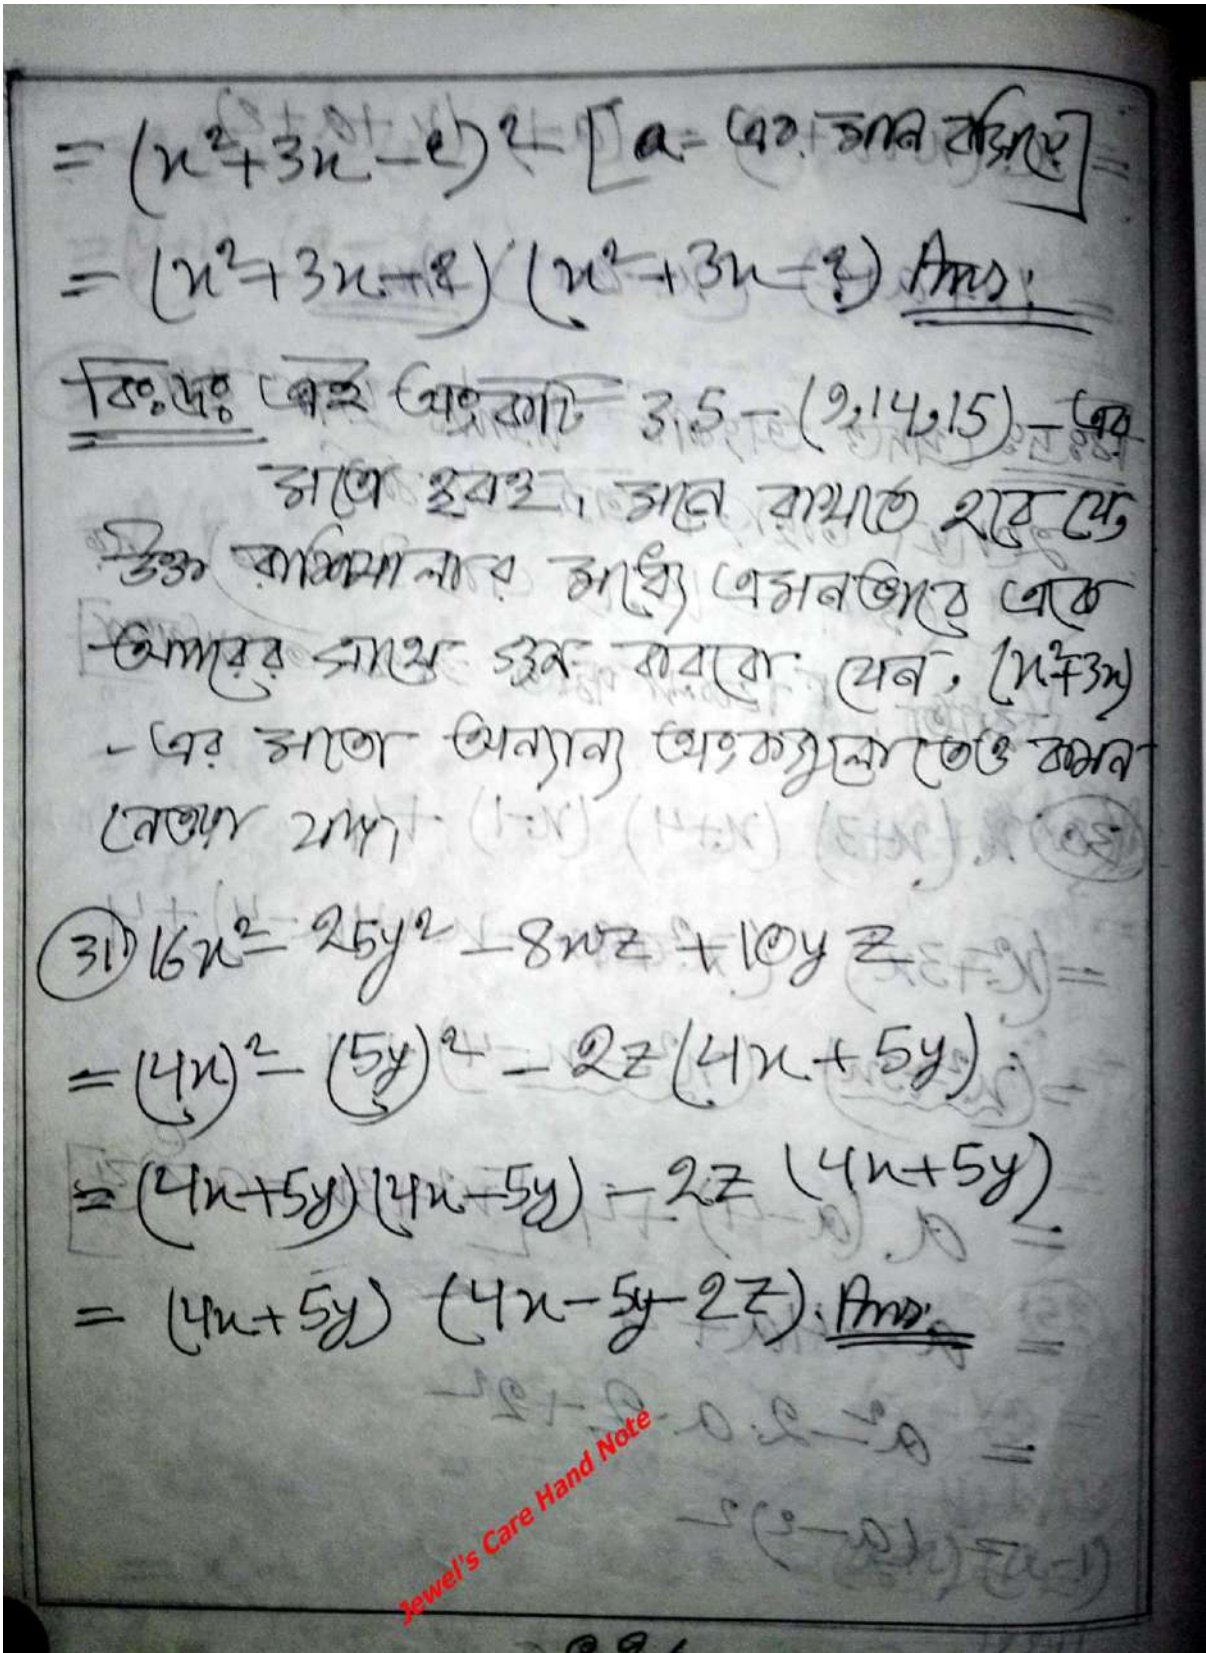 = (x²+3x-2)² [a= এর মান বসিয়ে]
= (x²+3x-2) (x²+3x-2) Ans:
বিঃদ্রঃ এই অংকটি 3.5 - (9,14,15) - এর
মতো হুবহু, মনে রাখতে হবে যে,
উক্ত রাশিমালার মধ্যে এমনভাবে একে
অপরের সাথে গুন করবো যেন, (x²+3x)
- এর মতো অন্যান্য অংকগুলোতেও কমন
নেওয়া যায়।
31) 16x² - 25y² - 8xz + 10yz
= (4x)² - (5y)² - 2z(4x + 5y)
= (4x+5y)(4x-5y) - 2z (4x+5y)
= (4x+5y) (4x-5y-2z). Ans:
Jewel's Care Hand Note